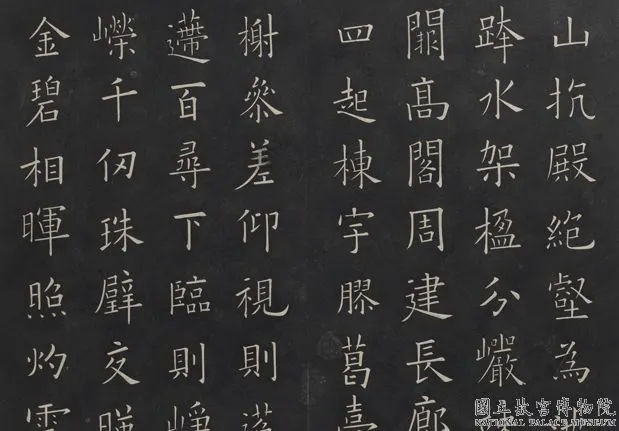 山抗殿絕壑為
跨水架楹分巖
闕高閣周建長廊
四起棟宇膠葛臺
榭參差仰視則迢
遰百尋下臨則崢
嶸千仞珠璧交映
金碧相暉照灼雲
國立故宮博物院
NATIONAL PALACE MUSEUM